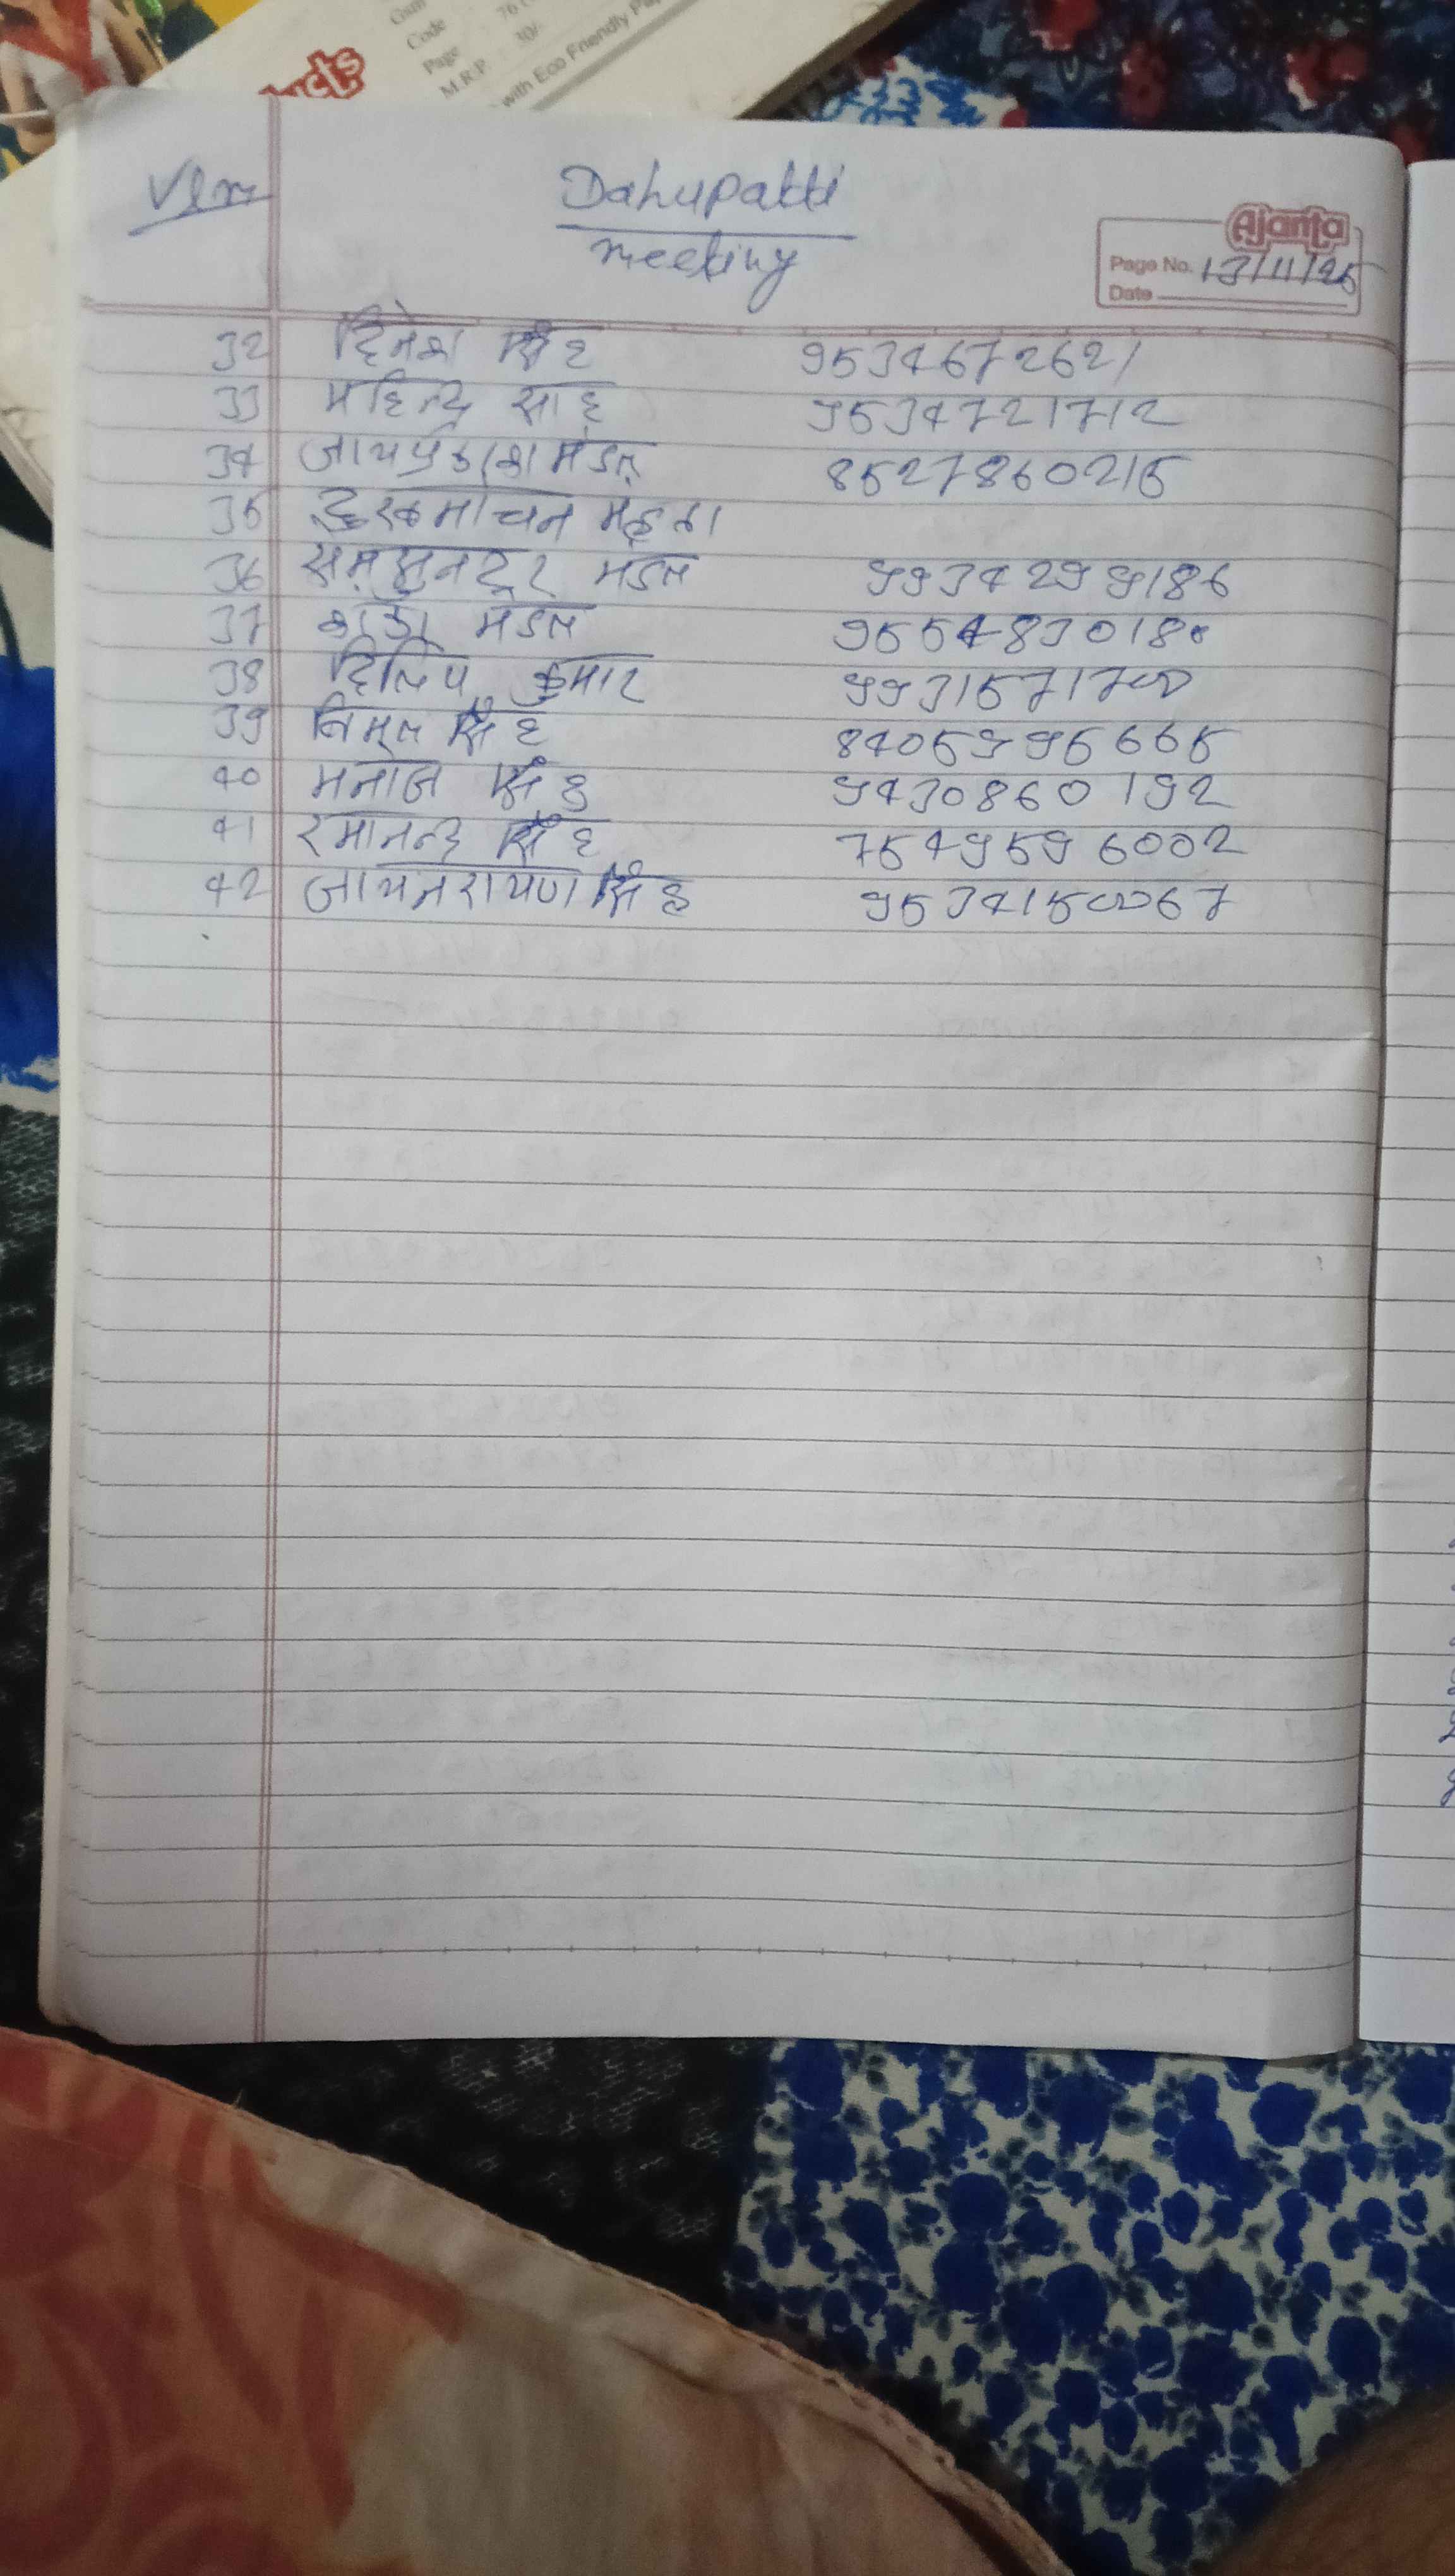 ucts
Code
Page
M.R.P. 30/-
with Eco Friendly
Vlm
Dahupatti
meeting
Ajanta
Page No. 13/11/25
Date
32 दिनेश सिंह 9534672621
33 महिन्द्र साह 9534721712
34 जायप्रकाश मंडल 8527860215
35 दुखमोचन महता
36 मंडल 9934299186
37 मंडल 955483018
38 दिलिप कुमार 9931571700
39 निमल सिंह 8405995665
40 मनोज सिंह 9430860192
41 रमानन्द सिंह 7549596002
42 जायनरायण सिंह 9534150067